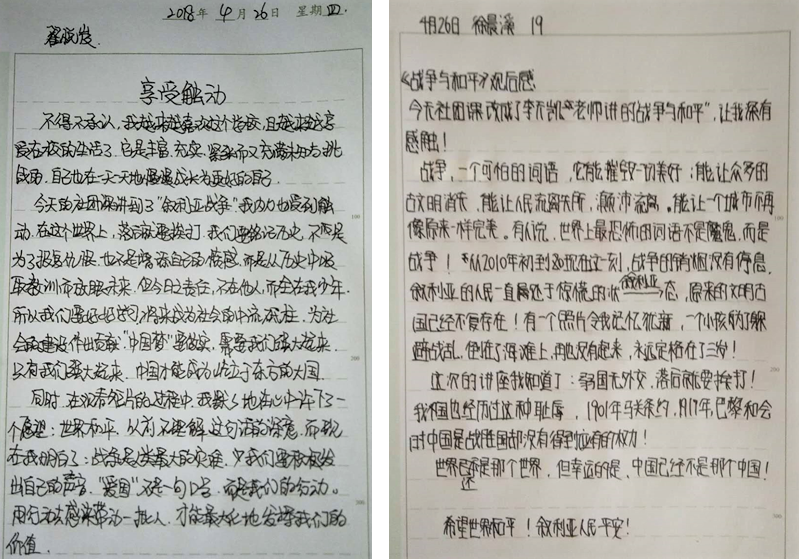 2018年 4月 26日 星期四.
享受触动
不得不承认,我越来越喜欢这个学校,且越来越享
受在校的生活了.它是丰富,充实,紧张而又充满未知与挑
战的.自己也在一天天地慢慢成长为更好的自己.
今天的社团课讲到了"叙利亚战争".我内心也受到触
动.在这个世界上,落后就要挨打.我们要铭记历史,不是
为了报复仇恨.也不是增添自己的情感.而是从历史中吸
取教训而放眼未来.但今日之责任,不在他人,而全在我少年.
所以我们要好好学习,将来成为社会的中流砥柱.为社
会的建设作出贡献."中国梦"要做实,需要我们强大起来.
只有我们强大起来,中国才能成为屹立于东方的大国.
同时,在观看短片的过程中,我默默地在心中许下了一
个愿望:世界和平.从前不理解这句话的深意,而现
在我明白了:战争是人类最大的灾难.我们要积极发
出自己的声音."爱国"不是一句口号,而是我们的行动.
用行动去感染带动一批人,才能最大化地发挥我们的
价值.
4月26日 徐晨溪 19
《战争与和平》观后感
今天社团课改成了李不凯老师讲的"战争与和平",让我深有
感触!
战争,一个可怕的词语,它能摧毁一切美好;能让众多的
古文明消失,能让人民流离失所,颠沛流离。能让一个城市不再
像原来一样完美。有人说,世界上最恐怖的词语不是魔鬼,而是
战争!从2010年初到现在这一刻,战争的硝烟没有停息,
叙利亚的人民一直处于惊慌的状态,原来的文明古
国已经不复存在!有一个照片令我记忆犹新,一个小孩为了躲
避战乱,倒在了海滩上,再也没有起来,永远定格在了三岁!
这次的讲座我知道了:弱国无外交,落后就要挨打!
我祖国也经历过这种耻辱,1901年马关条约,1917年,巴黎和会
时中国是战胜国却没有得到应有的权力!
世界还是那个世界,但幸运的是,中国已经不是那个中国!
希望世界和平!叙利亚人民平安!